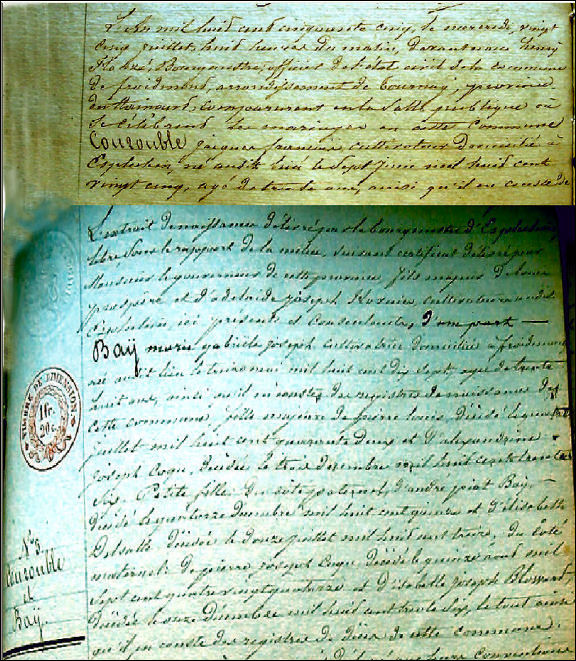 L'an mil huit cent cinquante cinq, le mercredi, vingt
cinq juillet, huit heures du matin, devant nous Henry
Bourgmestre, officier de l'état civil de la commune
de froidmont, arrondissement de Tournay, province
du Hainaut, comparurent en la Salle publique où
se célèbrent les mariages en cette Commune
Courouble jacques cultivateur domicilié à
Esplechin, né audit lieu le Sept juin mil huit cent
vingt cinq, agé de trente ans, ainsi qu'il en conste de
L'extrait de naissance délivré par le bourgmestre d'Esplechin,
libre sous le rapport de la milice, suivant certificat délivré par
Monsieur le gouverneur de cette province, fils majeur de
prospère et d'adelaïde joseph cultivateurs audit
Esplechin ici présents et consentants, d'une part
Baÿ marie joseph cultivatrice domiciliée à froidmont
née audit lieu le mil huit cent dix sept, agée de trente
huit ans, ainsi qu'il en conste des registres de naissance de
cette commune, fille majeure de pierre louis, décédé le
juillet mil huit cent quarante deux et d'alexandrine
joseph Coqu, décédée le trois décembre mil huit cent trente
Six. Petite fille du côté paternel, d'andré Baÿ,
décédé le quatorze décembre mil huit cent quinze et d'élisabeth
Delsalle décédée le douze juillet mil huit cent treize, du côté
maternel de pierre joseph Coqu décédé le quinze aout mil
sept cent quatre vingt quatorze et d'isabelle joseph
décédée le onze décembre mil huit cent trente Six, le tout ainsi
qu'il en conste des registres de décès de cette commune.
conventions
TIMBRE DE DIMENSION
1fr.
20c.
N° 3.
Courouble
et
Baÿ.